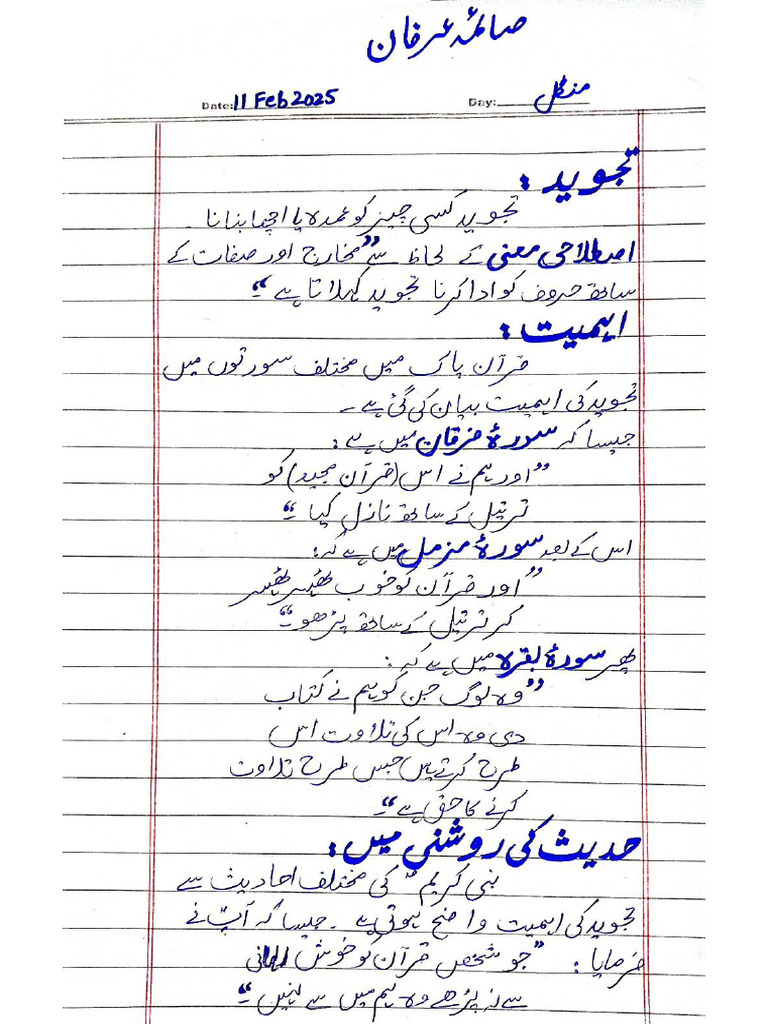 صائمہ عرفان
Date: 11 Feb 2025 Day: منگل
تجوید :
تجوید کسی چیز کو عمدہ یا اچھا بنانا ۔
اصطلاحی معنی کے لحاظ سے "مخارج اور صفات کے
ساتھ حروف کو ادا کرنا تجوید کہلاتا ہے"۔
اہمیت :
قرآن پاک میں مختلف سورتوں میں
تجوید کی اہمیت بیان کی گئی ہے ۔
جیسا کہ سورۃ فرقان میں ہے :
"اور ہم نے اس (قرآن مجید) کو
ترتیل کے ساتھ نازل کیا"۔
اس کے بعد سورۃ مزمل میں ہے کہ :
"اور قرآن کو خوب ٹھہر ٹھہر
کر ترتیل کے ساتھ پڑھو"۔
پھر سورۃ بقرہ میں ہے کہ :
"وہ لوگ جن کو ہم نے کتاب
دی وہ اس کی تلاوت اس
طرح کرتے ہیں جس طرح تلاوت
کرنے کا حق ہے"۔
حدیث کی روشنی میں :
نبی کریمؐ کی مختلف احادیث سے
تجوید کی اہمیت واضح ہوتی ہے ۔ جیسا کہ آپؐ نے
فرمایا : "جو شخص قرآن کو خوش الحانی
سے نہ پڑھے وہ ہم میں سے نہیں"۔